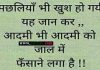 मछलियाँ भी खुश हो गयी
यह जान कर ,,
आदमी भी आदमी को
जाल में
फँसाने लगा है !!